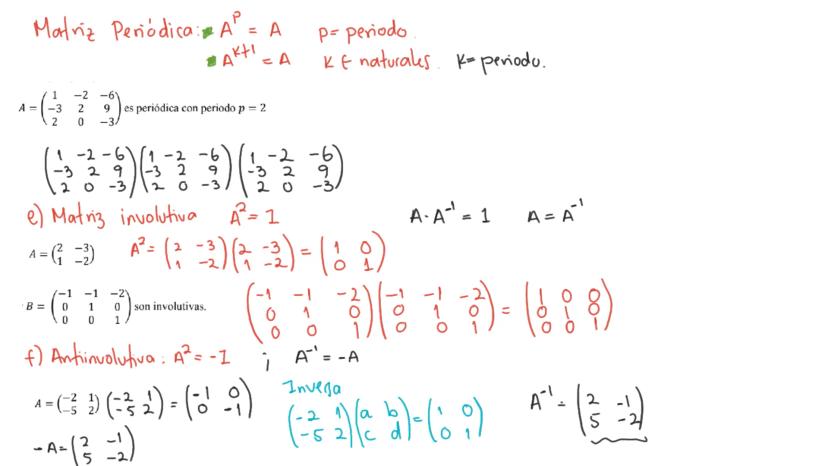 Matriz Periódica: A^P = A p= periodo.
A^{k+1} = A K ∈ naturales. K= periodo.
A = \begin{pmatrix} 1 & -2 & -6 \\ -3 & 2 & 9 \\ 2 & 0 & -3 \end{pmatrix} es periódica con periodo p = 2
\begin{pmatrix} 1 & -2 & -6 \\ -3 & 2 & 9 \\ 2 & 0 & -3 \end{pmatrix} \begin{pmatrix} 1 & -2 & -6 \\ -3 & 2 & 9 \\ 2 & 0 & -3 \end{pmatrix} \begin{pmatrix} 1 & -2 & -6 \\ -3 & 2 & 9 \\ 2 & 0 & -3 \end{pmatrix}
e) Matriz involutiva A^2 = I A · A^{-1} = 1 A = A^{-1}
A = \begin{pmatrix} 2 & -3 \\ 1 & -2 \end{pmatrix} A^2 = \begin{pmatrix} 2 & -3 \\ 1 & -2 \end{pmatrix} \begin{pmatrix} 2 & -3 \\ 1 & -2 \end{pmatrix} = \begin{pmatrix} 1 & 0 \\ 0 & 1 \end{pmatrix}
B = \begin{pmatrix} -1 & -1 & -2 \\ 0 & 1 & 0 \\ 0 & 0 & 1 \end{pmatrix} son involutivas. \begin{pmatrix} -1 & -1 & -2 \\ 0 & 1 & 0 \\ 0 & 0 & 1 \end{pmatrix} \begin{pmatrix} -1 & -1 & -2 \\ 0 & 1 & 0 \\ 0 & 0 & 1 \end{pmatrix} = \begin{pmatrix} 1 & 0 & 0 \\ 0 & 1 & 0 \\ 0 & 0 & 1 \end{pmatrix}
f) Antiinvolutiva: A^2 = -I ; A^{-1} = -A
A = \begin{pmatrix} -2 & 1 \\ -5 & 2 \end{pmatrix} \begin{pmatrix} -2 & 1 \\ -5 & 2 \end{pmatrix} = \begin{pmatrix} -1 & 0 \\ 0 & -1 \end{pmatrix}
-A = \begin{pmatrix} 2 & -1 \\ 5 & -2 \end{pmatrix}
Inversa
\begin{pmatrix} -2 & 1 \\ -5 & 2 \end{pmatrix} \begin{pmatrix} a & b \\ c & d \end{pmatrix} = \begin{pmatrix} 1 & 0 \\ 0 & 1 \end{pmatrix}
A^{-1} = \begin{pmatrix} 2 & -1 \\ 5 & -2 \end{pmatrix}